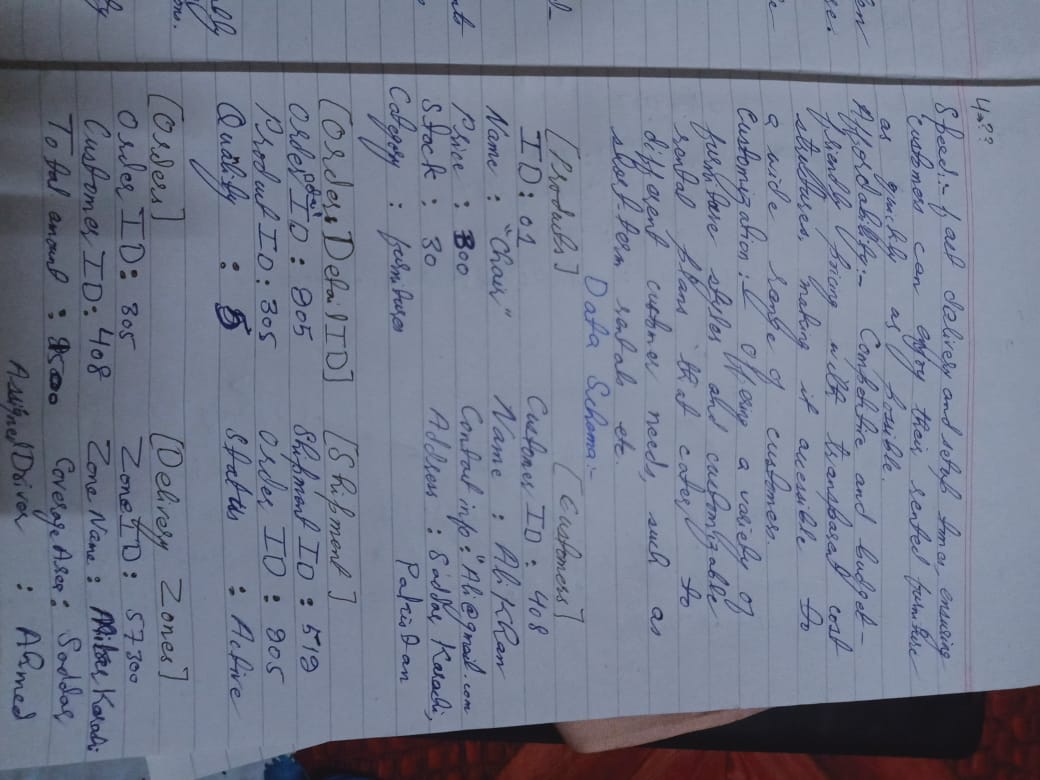 4→??
Speed:- fast delivery and setup times, ensuring
customers can enjoy their rented furniture
as quickly as possible.
Affordability:- Competitive and budget-
friendly pricing with transparent cost
structures, making it accessible to
a wide range of customers.
Customization:- Offering a variety of
furniture styles and customizable
rental plans that cater to
different customer needs, such as
short-term rentals etc.
Data Schema:-
[Products]
ID: 01
Name : "Chair"
Price : 300
Stock : 30
Category : furnitures
[Customers]
Customer ID : 408
Name : Ali Khan
Contact info : "Ali@gmail.com
Address : Saddar Karachi,
Pakistan
[Orders DetailID]
Order Detail ID : 905
Product ID : 305
Quality : 5
[Shipment]
Shipment ID : 519
Order ID : 905
Status : Active
[Orders]
Order ID : 805
Customer ID : 408
Total amount : 1500
[Delivery Zones]
Zone ID : 57300
Zone Name : Karachi
Coverage Area : Saddar
Assigned Driver : Ahmed
en
se.
e
nts
bly
ons.
ty